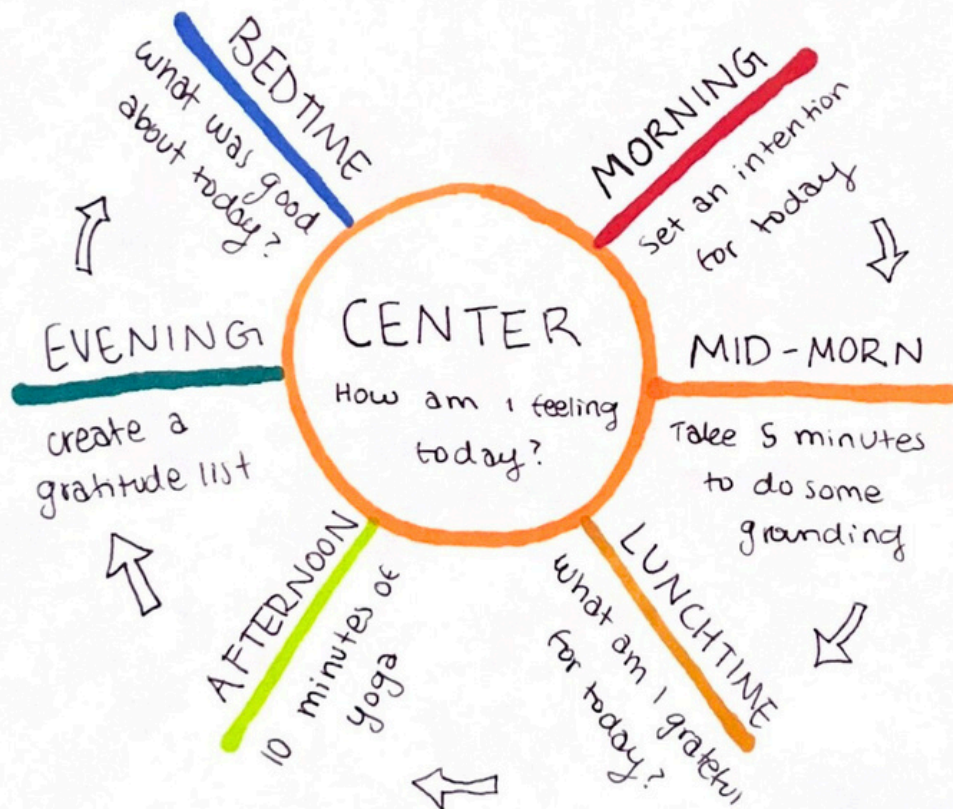 CENTER
How am I feeling
today?
MORNING
Set an intention
for today
MID-MORN
Take 5 minutes
to do some
grounding
LUNCHTIME
What am I grateful
for today?
AFTERNOON
10 minutes of
yoga
EVENING
create a
gratitude list
BEDTIME
What was good
about today?